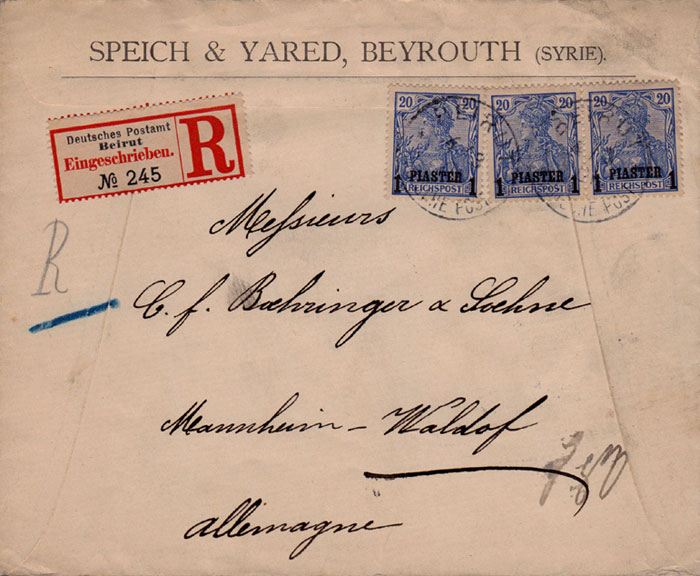 SPEICH & YARED, BEYROUTH (SYRIE).
Deutsches Postamt
Beirut
Eingeschrieben.
№ 245
R
20 20 20 20 20
1 PIASTER 1 1 PIASTER 1 PIASTER 1
REICHSPOST REICHSPOST REICHSPOST
R
Messieurs
C. f. Boehringer & Soehne
Mannheim – Waldof
Allemagne